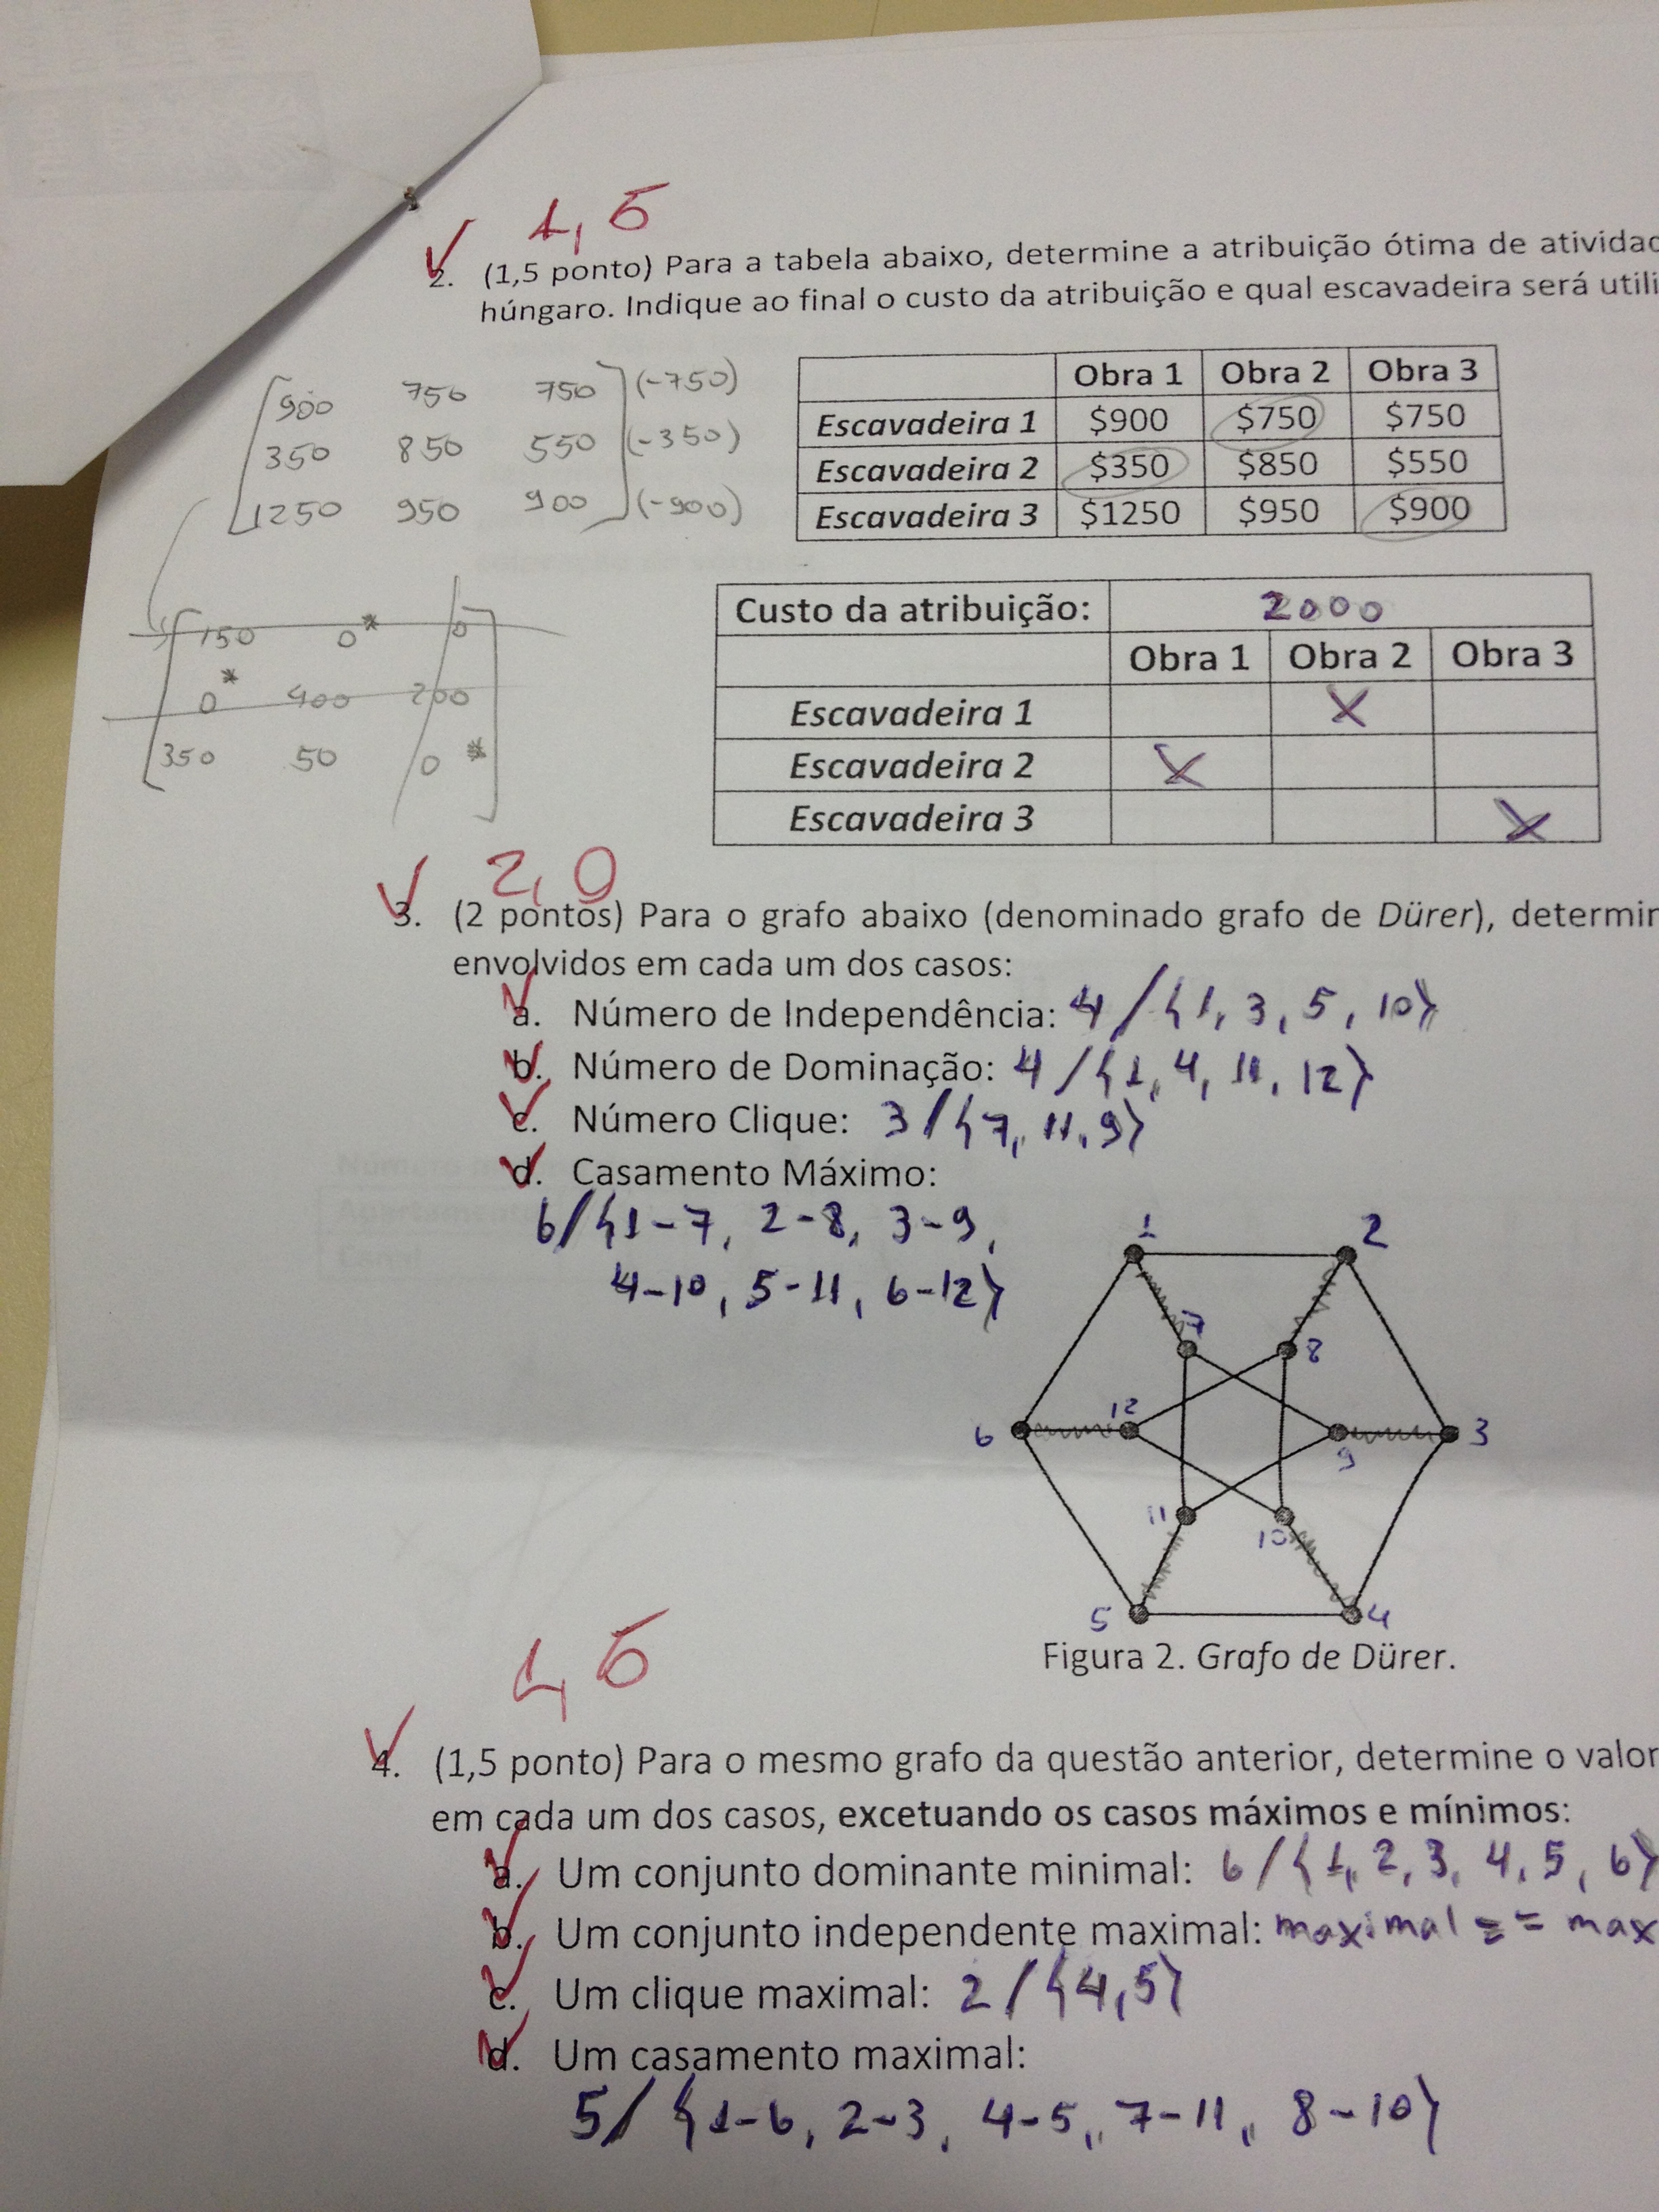 1,5
2. (1,5 ponto) Para a tabela abaixo, determine a atribuição ótima de
húngaro. Indique ao final o custo da atribuição e qual escavadeira será
900 750 750 (-750)
350 850 550 (-350)
1250 950 900 (-900)
Obra 1 Obra 2 Obra 3
Escavadeira 1 $900 $750 $750
Escavadeira 2 $350 $850 $550
Escavadeira 3 $1250 $950 $900
150 0* 0
0* 400 200
350 50 0*
Custo da atribuição: 2000
Obra 1 Obra 2 Obra 3
Escavadeira 1 X
Escavadeira 2 X
Escavadeira 3 X
2,0
3. (2 pontos) Para o grafo abaixo (denominado grafo de Dürer),
envolvidos em cada um dos casos:
a. Número de Independência: 4 / {1, 3, 5, 10}
b. Número de Dominação: 4 / {1, 4, 11, 12}
c. Número Clique: 3 / {7, 11, 9}
d. Casamento Máximo:
6 / {1-7, 2-8, 3-9,
4-10, 5-11, 6-12}
1 2
7 8
6 12 9 3
11 10
5 4
Figura 2. Grafo de Dürer.
1,5
4. (1,5 ponto) Para o mesmo grafo da questão anterior, determine o valor
em cada um dos casos, excetuando os casos máximos e mínimos:
a. Um conjunto dominante minimal: 6 / {1, 2, 3, 4, 5, 6}
b. Um conjunto independente maximal: maximal == max
c. Um clique maximal: 2 / {4, 5}
d. Um casamento maximal:
5 / {1-6, 2-3, 4-5, 7-11, 8-10}